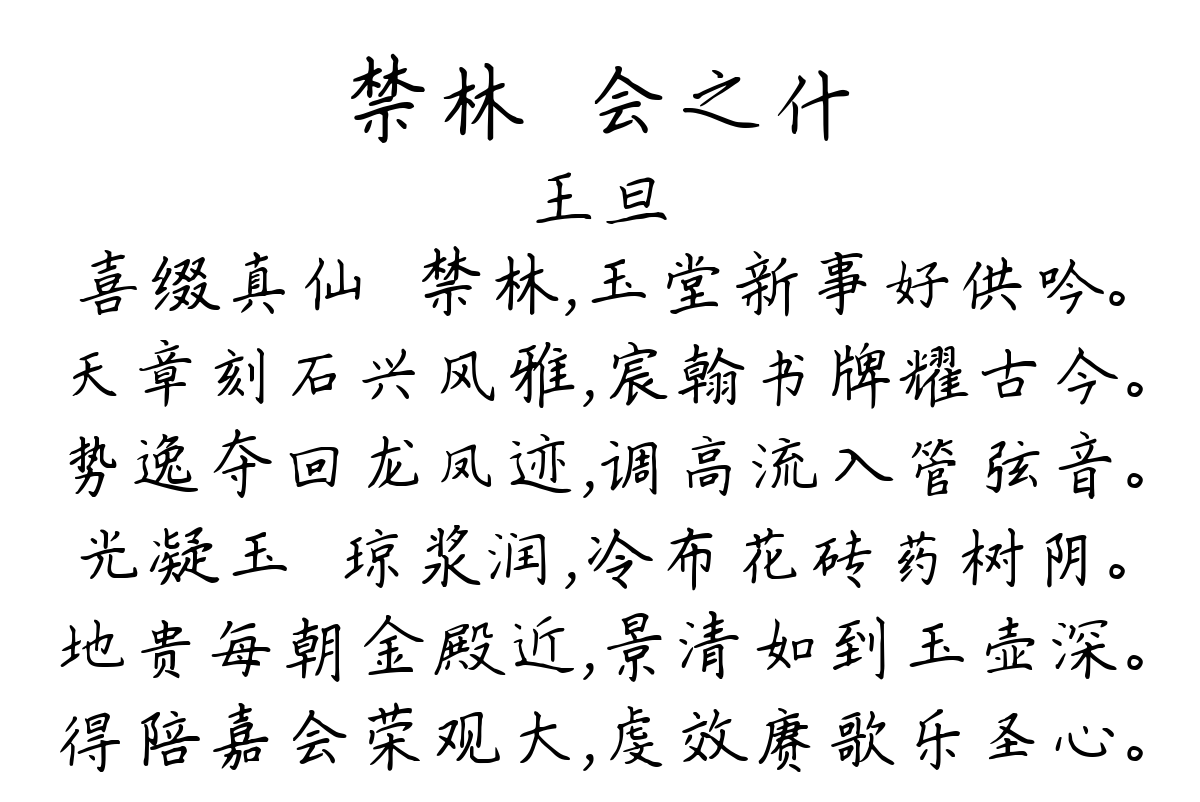 禁林 会之什
王旦
喜缀真仙 禁林,玉堂新事好供吟。
天章刻石兴风雅,宸翰书牌耀古今。
势逸夺回龙凤迹,调高流入管弦音。
光凝玉 琼浆润,冷布花砖药树阴。
地贵每朝金殿近,景清如到玉壶深。
得陪嘉会荣观大,虔效赓歌乐圣心。